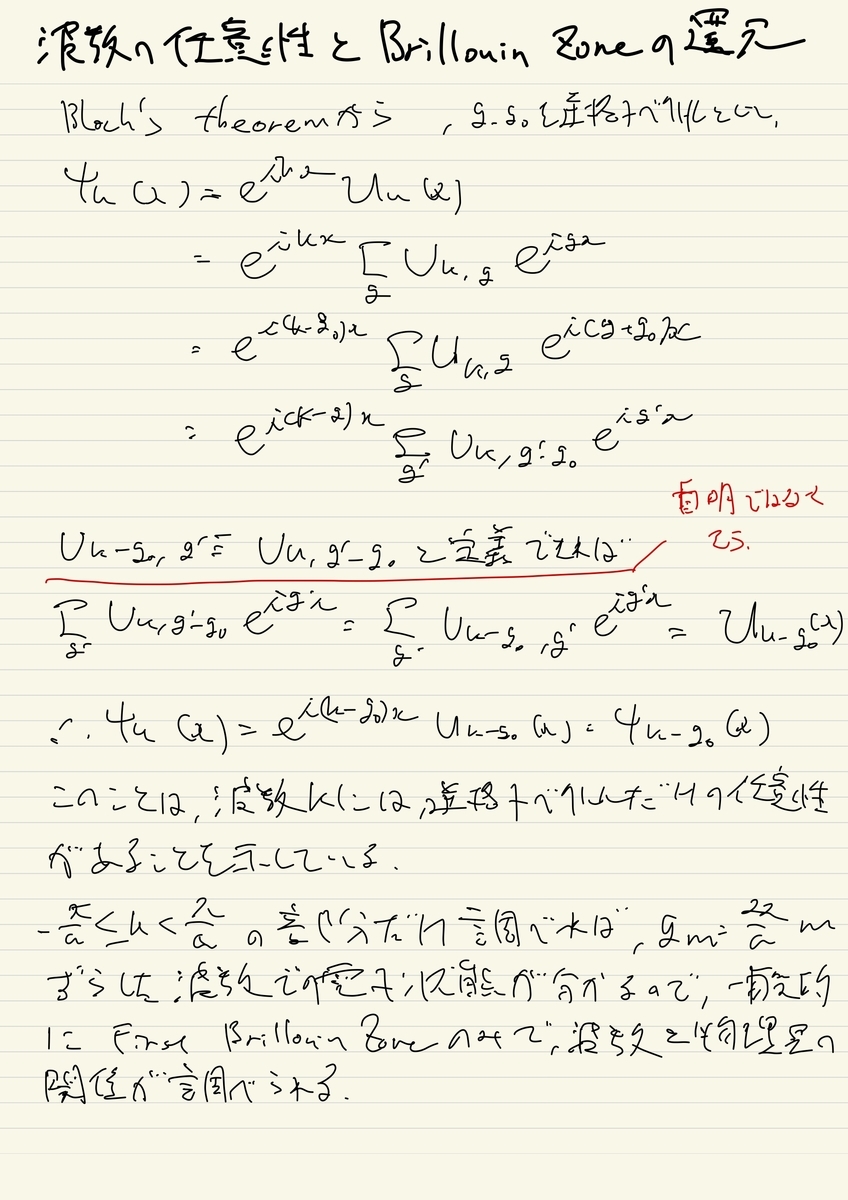 波数の任意性と Brillouin Zoneの選定
Bloch's theoremから , g, g₀を逆格子ベクトルとして,
ψk(x) = e^{ikx} uk(x)
= e^{ikx} Σ_g U_{k,g} e^{igx}
= e^{i(k-g₀)x} Σ_g U_{k,g} e^{i(g+g₀)x}
= e^{i(k-g)x} Σ_{g'} U_{k,g'-g₀} e^{ig'x}
自明ではなくて
そう.
U_{k-g₀,g'} ≡ U_{k,g'-g₀} と定義できれば
Σ_{g'} U_{k,g'-g₀} e^{ig'x} = Σ_{g'} U_{k-g₀,g'} e^{ig'x} = u_{k-g₀}(x)
∴ ψk(x) = e^{i(k-g₀)x} u_{k-g₀}(x) = ψ_{k-g₀}(x)
このことは, 波数kには, 逆格子ベクトルだけの任意性
があることを示している.
-π/a ≤ k < π/a の部分だけ調べれば, gm = 2π/a m
ずらした波数での電子状態が分かるので, 一般的
に First Brillouin Zoneのみで, 波数と物理量の
関係が調べられる.